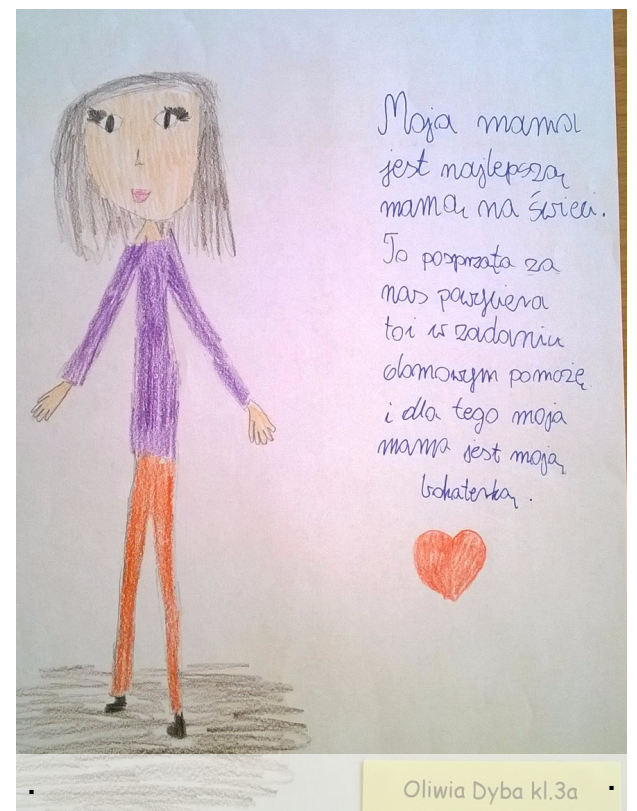 Moja mama
jest najlepszą
mamą na świeci.
To posprząta za
nas pawybiera
toi w zadaniu
domowym pomożę
i dla tego moja
mama jest moją
bohaterką.
Oliwia Dyba kl.3a